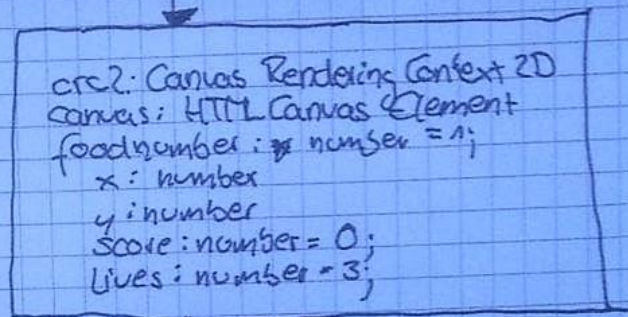 crc2: Canvas Rendering Context 2D
canvas: HTML Canvas Element
foodnumber: number = 1;
x: number
y: number
score: number = 0;
Lives: number = 3;